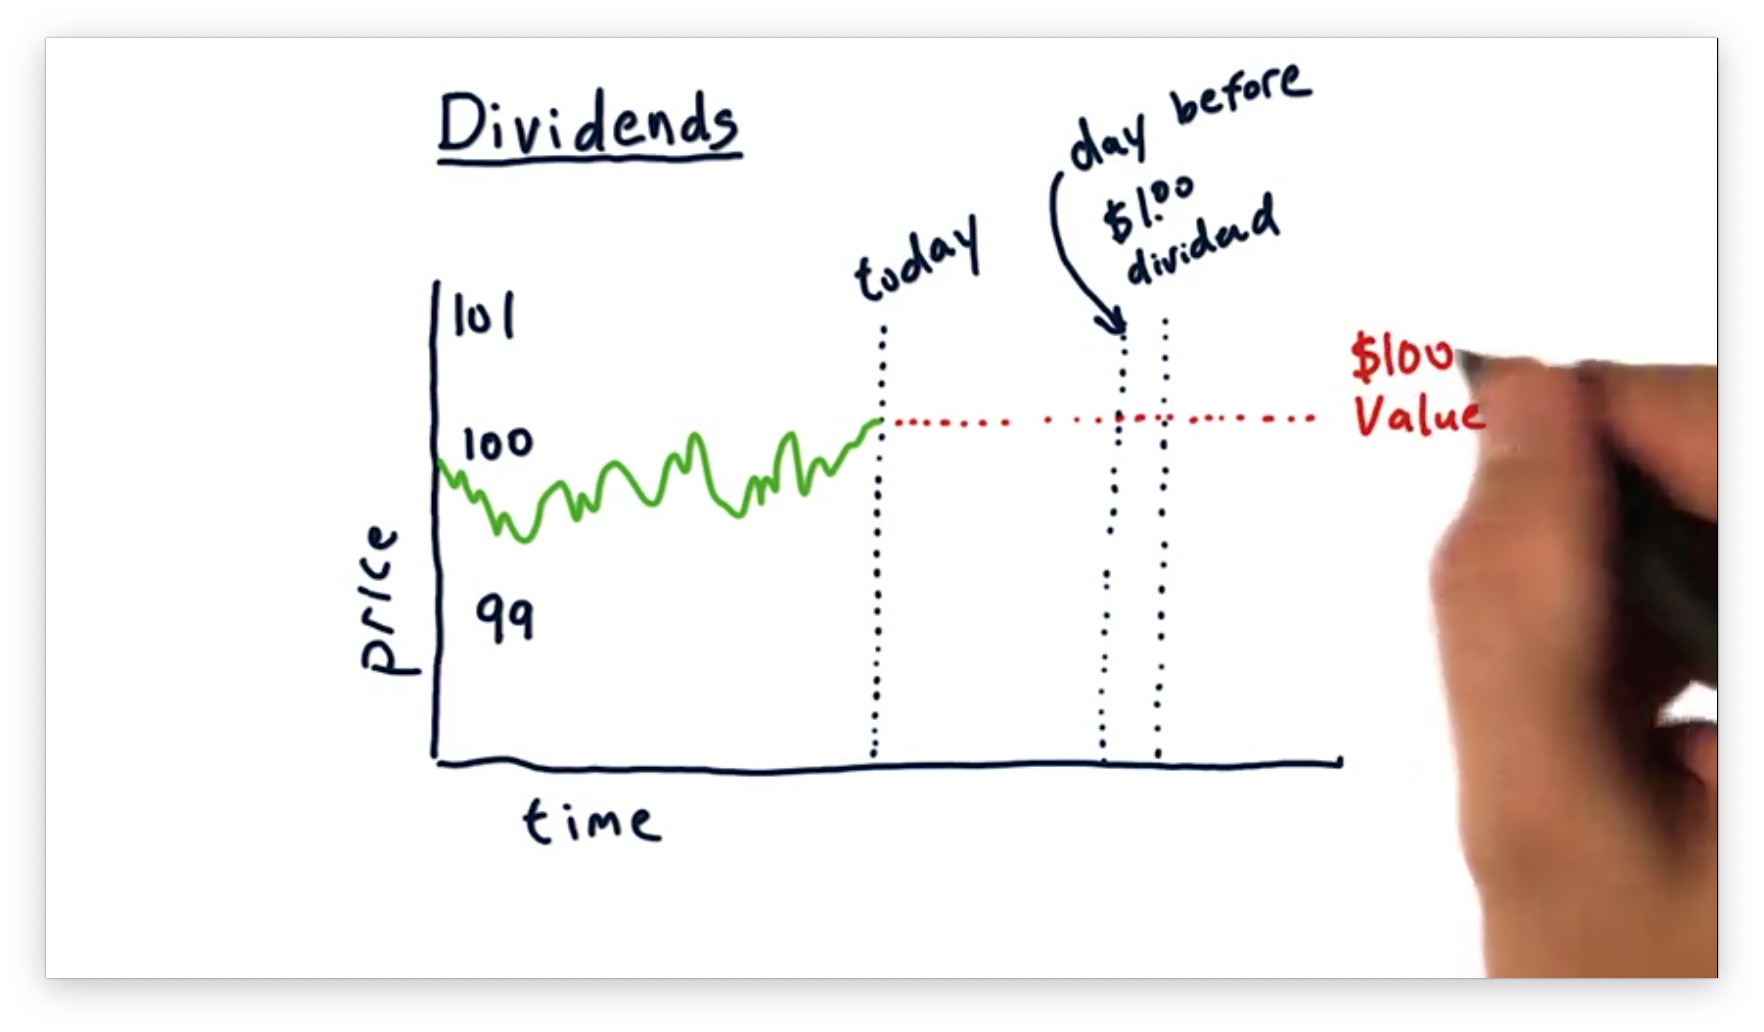 Dividends
day before
$1.00
dividend
today
101
100
99
price
time
$100
Value